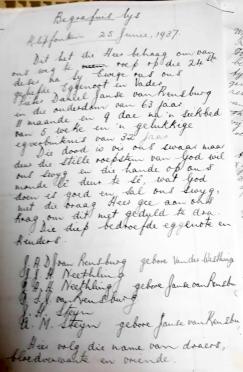 Begrafnis lys
Klipfontein 25 Junie, 1937.
Dit het die Heer behaag om van
ons weg te roep op die 24ste
deser na sy Ewige ons ons
Geliefde Eggenoot en Vader
Daniel Janse van Rensburg
in die ouderdom van 63 jaar
7 maande en 9 dae na 'n siekbed
van 5 weke en 'n gelukkige
egverbintenis van 32 jaar
Die dood is vir ons swaar maar
deur die stille roepstem van God wil
ons swyg en die hande op ons
monde lê deur te sê, wat God
doen is goed en sal ons swyg,
met die vraag Heer gee aan ons
krag om dit met geduld te dra.
Die diep bedroefde eggenote en
Kinders.
J. A. J. van Rensburg gebore Van der Westhuizen
J. J. A. Neethling
E. J. A. Neethling gebore Janse van Rensburg
G. J. J. van Rensburg
J. H. Steyn
A. M. Steyn gebore Janse van Rensburg
Hier volg die name van draers,
bloedverwante en vriende.